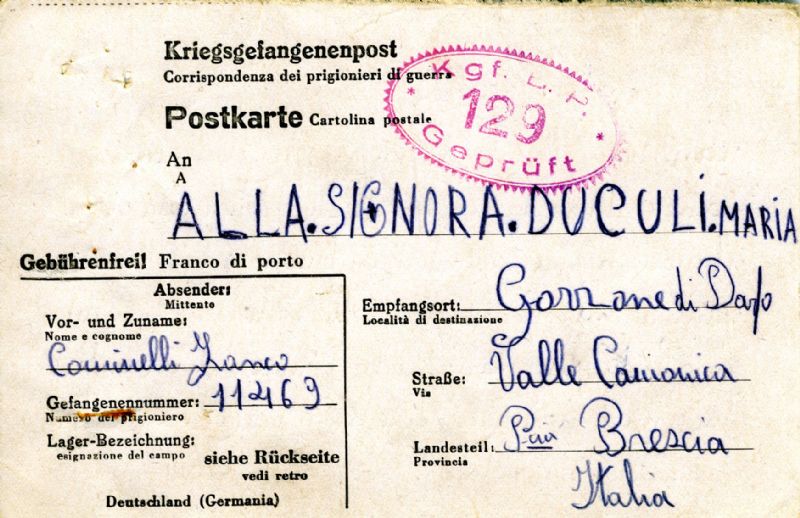 Kriegsgefangenenpost
Corrispondenza dei prigionieri di guerra
Kgf. L. P.
129
Geprüft
Postkarte Cartolina postale
An
A
ALLA.SIGNORA.DUCULI.MARIA
Gebührenfrei! Franco di porto
Absender:
Mittente
Vor- und Zuname:
Nome e cognome
Cominelli Franco
Gefangenennummer: 11469
Numero del prigioniero
Lager-Bezeichnung:
esignazione del campo
siehe Rückseite
vedi retro
Deutschland (Germania)
Empfangsort: Gorzone di Darfo
Località di destinazione
Straße: Valle Camonica
Via
Landesteil: Brescia
Provincia
Italia